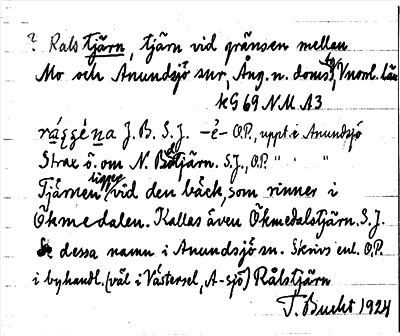 ? Ralstjärn, tjärn vid gränsen mellan
Mo och Anundsjö snr, Ång. n. doms, Vnorrl. län
kG 69 N.M. A3
J. B. S. J. -è- O.P., uppt. i Anundsjö
Strax ö. om N. Båtjärn. S.J., O.P. " " "
Tjärnen ligger vid den bäck, som rinner i
Ökmedalen. Kallas även Ökmedalstjärn. S.J.
Se dessa namn i Anundsjö sn. Skrivs enl. O.P.
i byhandl. (väl i Västersel, A-sjö) Rålstjärn
T. Bucht 1924